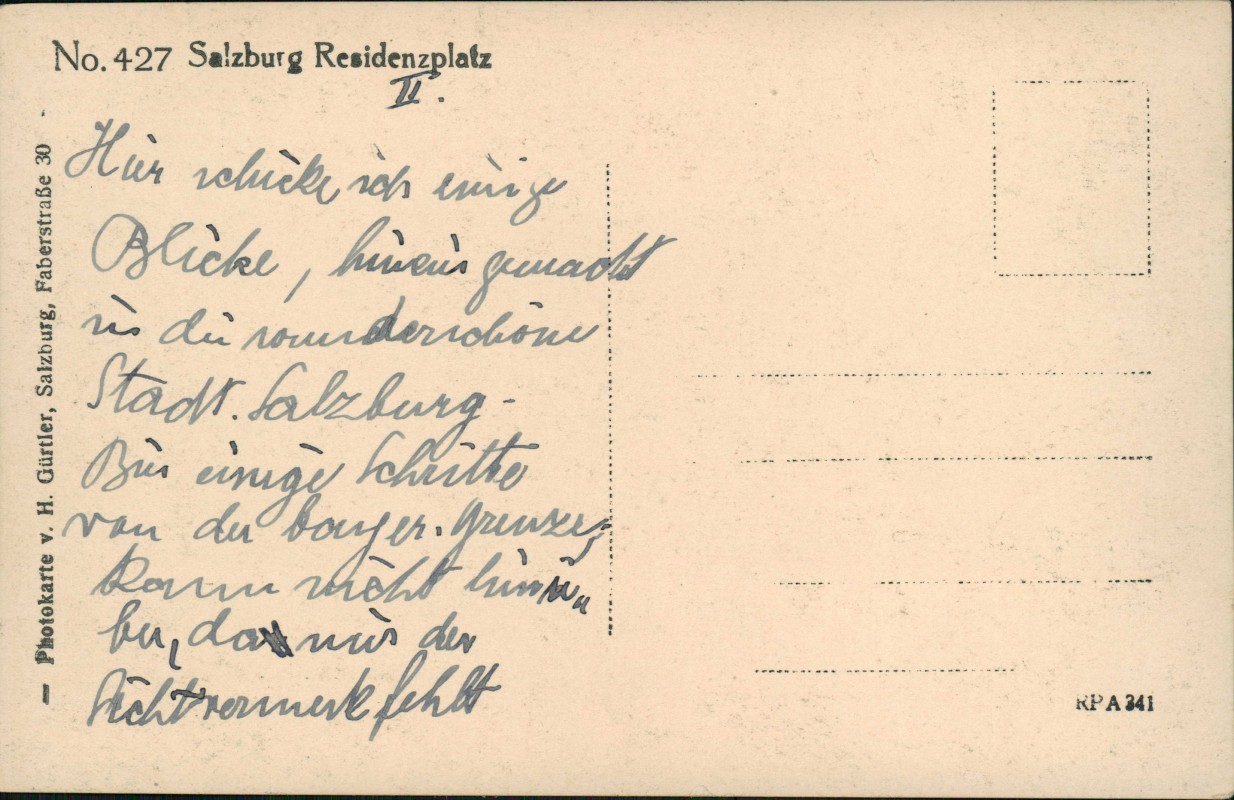 No. 427 Salzburg Residenzplatz
II.
Hier schicke ich einige
Blicke, hinein gemacht
in die wunderschöne
Stadt. Salzburg-
Bin einige Schritte
von der bayer. Grenze,
kann nicht hinü„
ber, da mir der
Sichtvermerk fehlt
— Photokarte v. H. Gürtler, Salzburg, Faberstraße 30 -
RPA 341